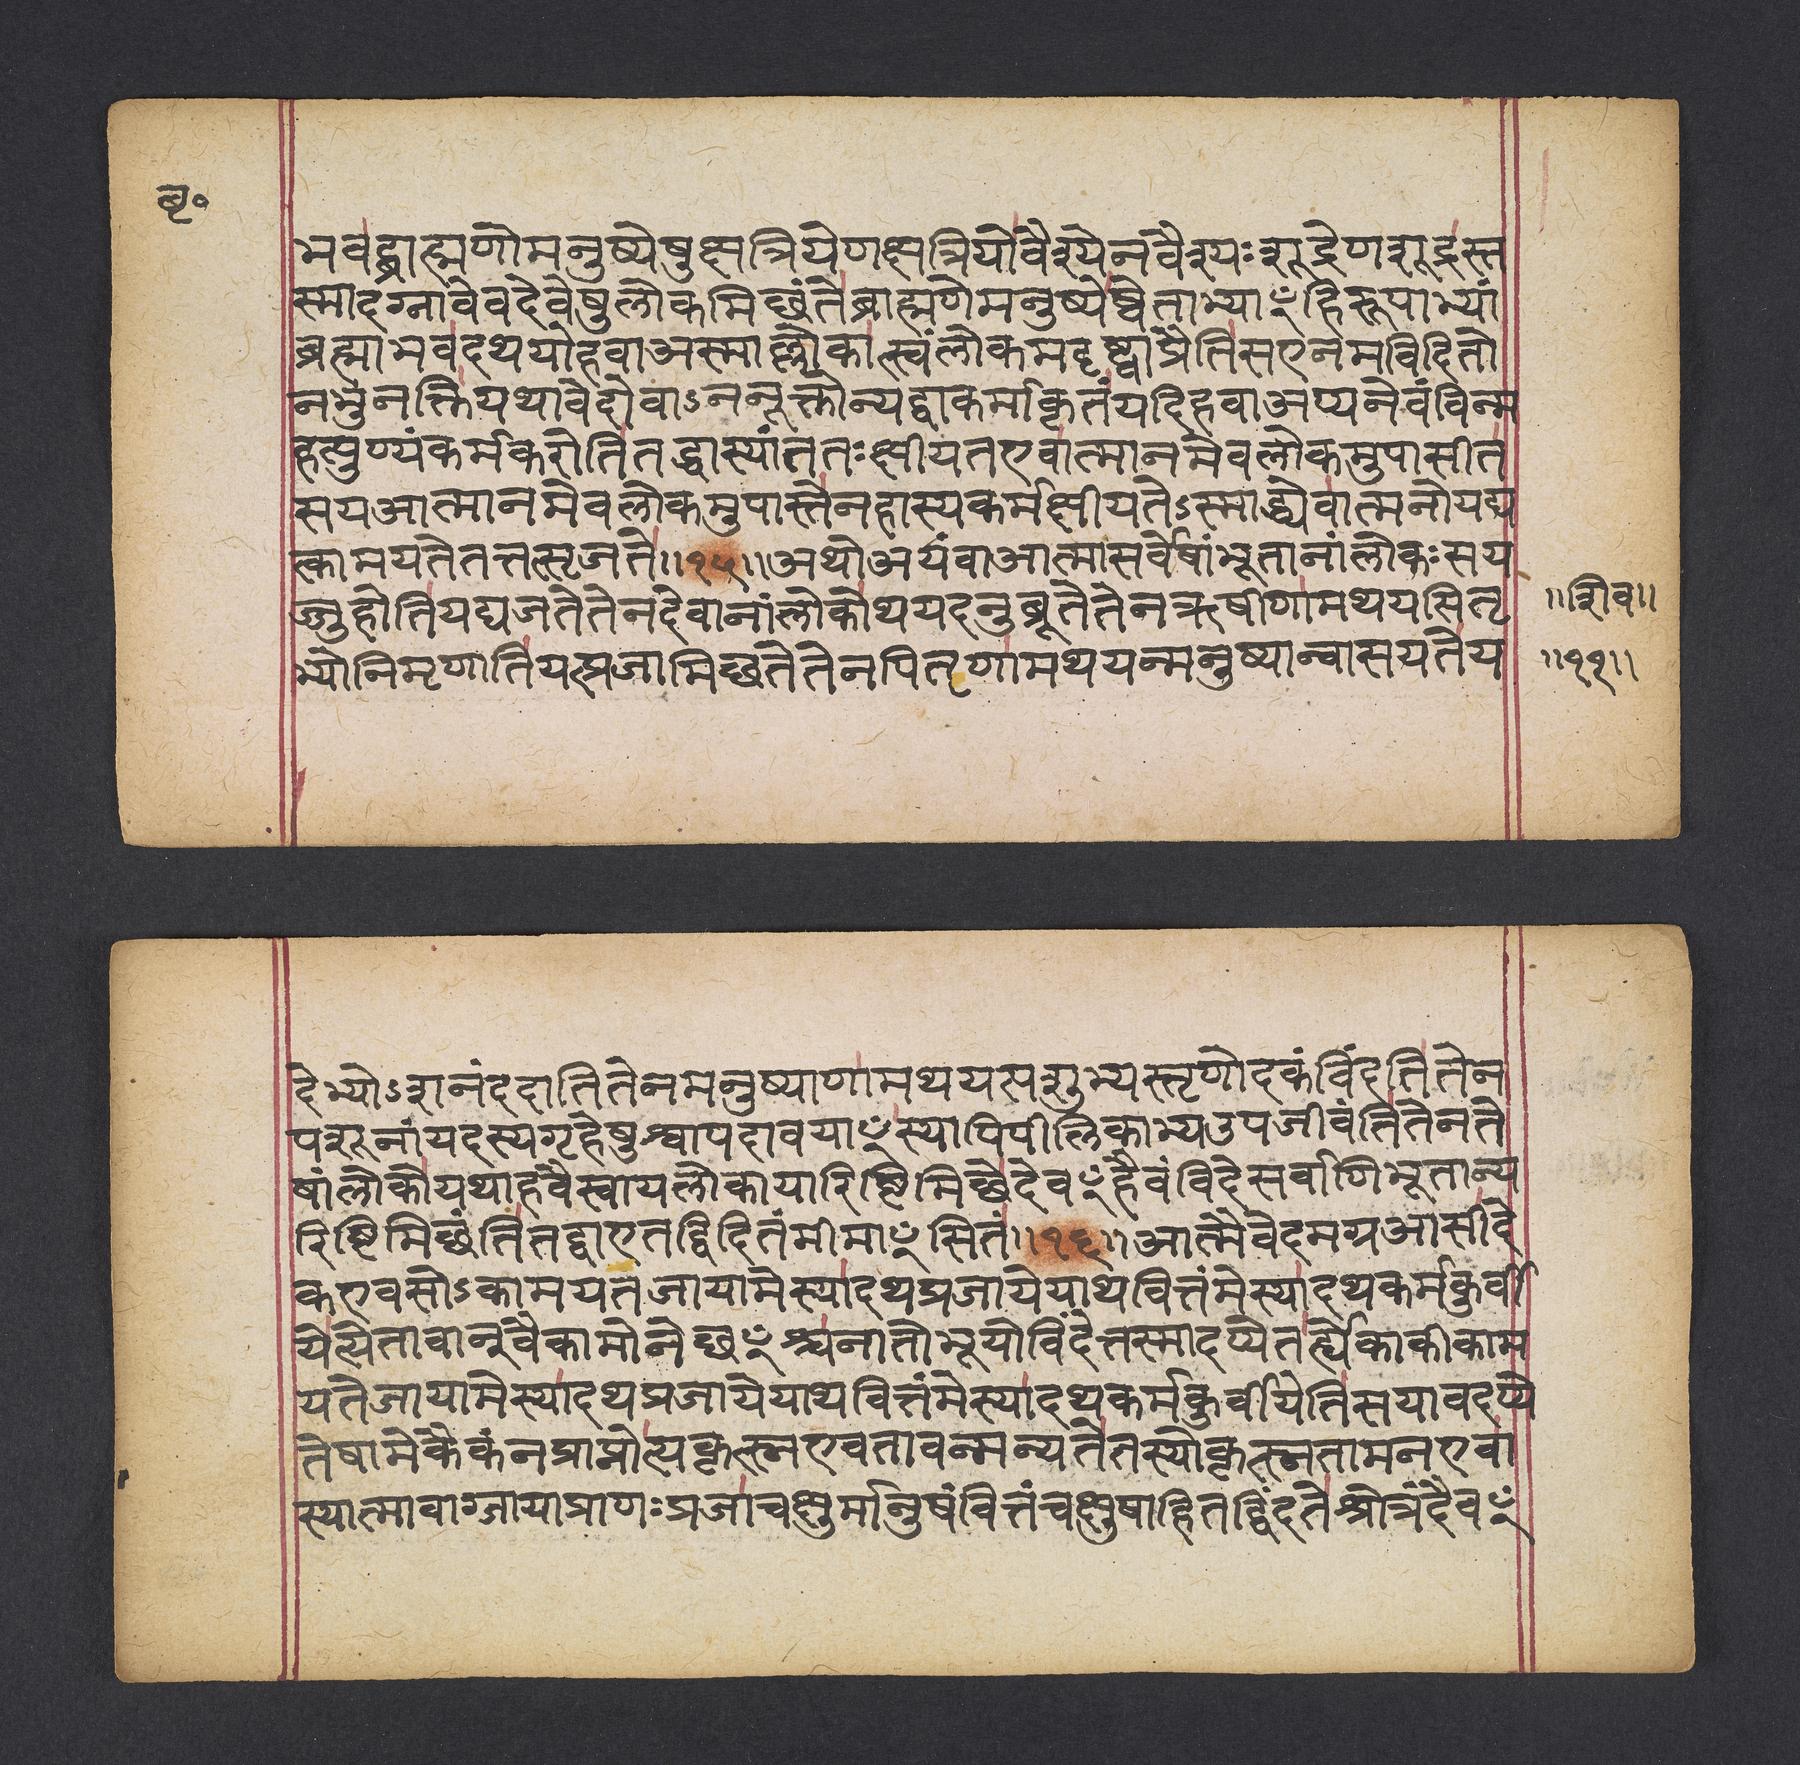 बृ०
भवद्ब्राह्मणोमनुष्येषुक्षत्रियेणक्षत्रियोवैश्येनवैश्यःशूद्रेणशूद्रस्त
स्मादग्नावेवदेवेषुलोकमिछंतेब्राह्मणेमनुष्येष्वेताभ्याꣳहिरूपाभ्यां
ब्रह्माभवदथयोहवाअस्माल्लोकात्स्वंलोकमदृष्ट्वाप्रैतिसएनमविदितो
नभुनक्तियथावेदोवाऽननूक्तोन्यद्वाकर्माकृतंयदिहवाअप्यनेवंविन्म
हत्पुण्यंकर्मकरोतितद्धास्यांततःक्षीयतएवात्मानमेवलोकमुपासीत
सयआत्मानमेवलोकमुपास्तेनहास्यकर्मक्षीयतेऽस्माद्ध्येवात्मनोयद्य
त्कामयतेतत्तत्सृजते॥१५॥अथोअयंवाआत्मासर्वेषांभूतानांलोकःसय
ज्जुहोतियद्यजतेतेनदेवानांलोकोथयदनुब्रूतेतेनऋषीणामथयत्पितृ
॥शिव॥
भ्योनिमृणातियत्प्रजामिछतेतेनपितृणामथयन्मनुष्यान्वासयतेय
॥११॥
देभ्योऽशनंददातितेनमनुष्याणामथयत्पशुभ्यस्तृणोदकंविंदतितेन
पशूनांयदस्यगृहेषुश्वापदावयाꣳस्यापिपीलिकाभ्यउपजीवंतितेनते
षांलोकोयथाहवैस्वायलोकायारिष्टिमिछेदेवꣳहैवंविदेसर्वाणिभूतान्य
रिष्टिमिछंतितद्वाएतद्विदितंमीमाꣳसितं॥१६॥आत्मैवेदमग्रआसीदे
कएवसोऽकामयतजायामेस्यादथप्रजायेयाथवित्तंमेस्यादथकर्मकुर्वी
येत्येतावान्वैकामोनेछꣳश्चनातोभूयोविंदेत्तस्मादप्येतर्ह्येकाकीकाम
यतेजायामेस्यादथप्रजायेयाथवित्तंमेस्यादथकर्मकुर्वीयेतिसयावदप्ये
तेषामेकैकंनप्राप्नोत्यकृत्स्नएवतावन्मन्यतेतस्योकृत्स्नतामनएवा
स्यात्मावाग्जायाप्राणःप्रजाचक्षुर्मानुषंवित्तंचक्षुषाहितद्विंदतेश्रोत्रंदैवꣳ